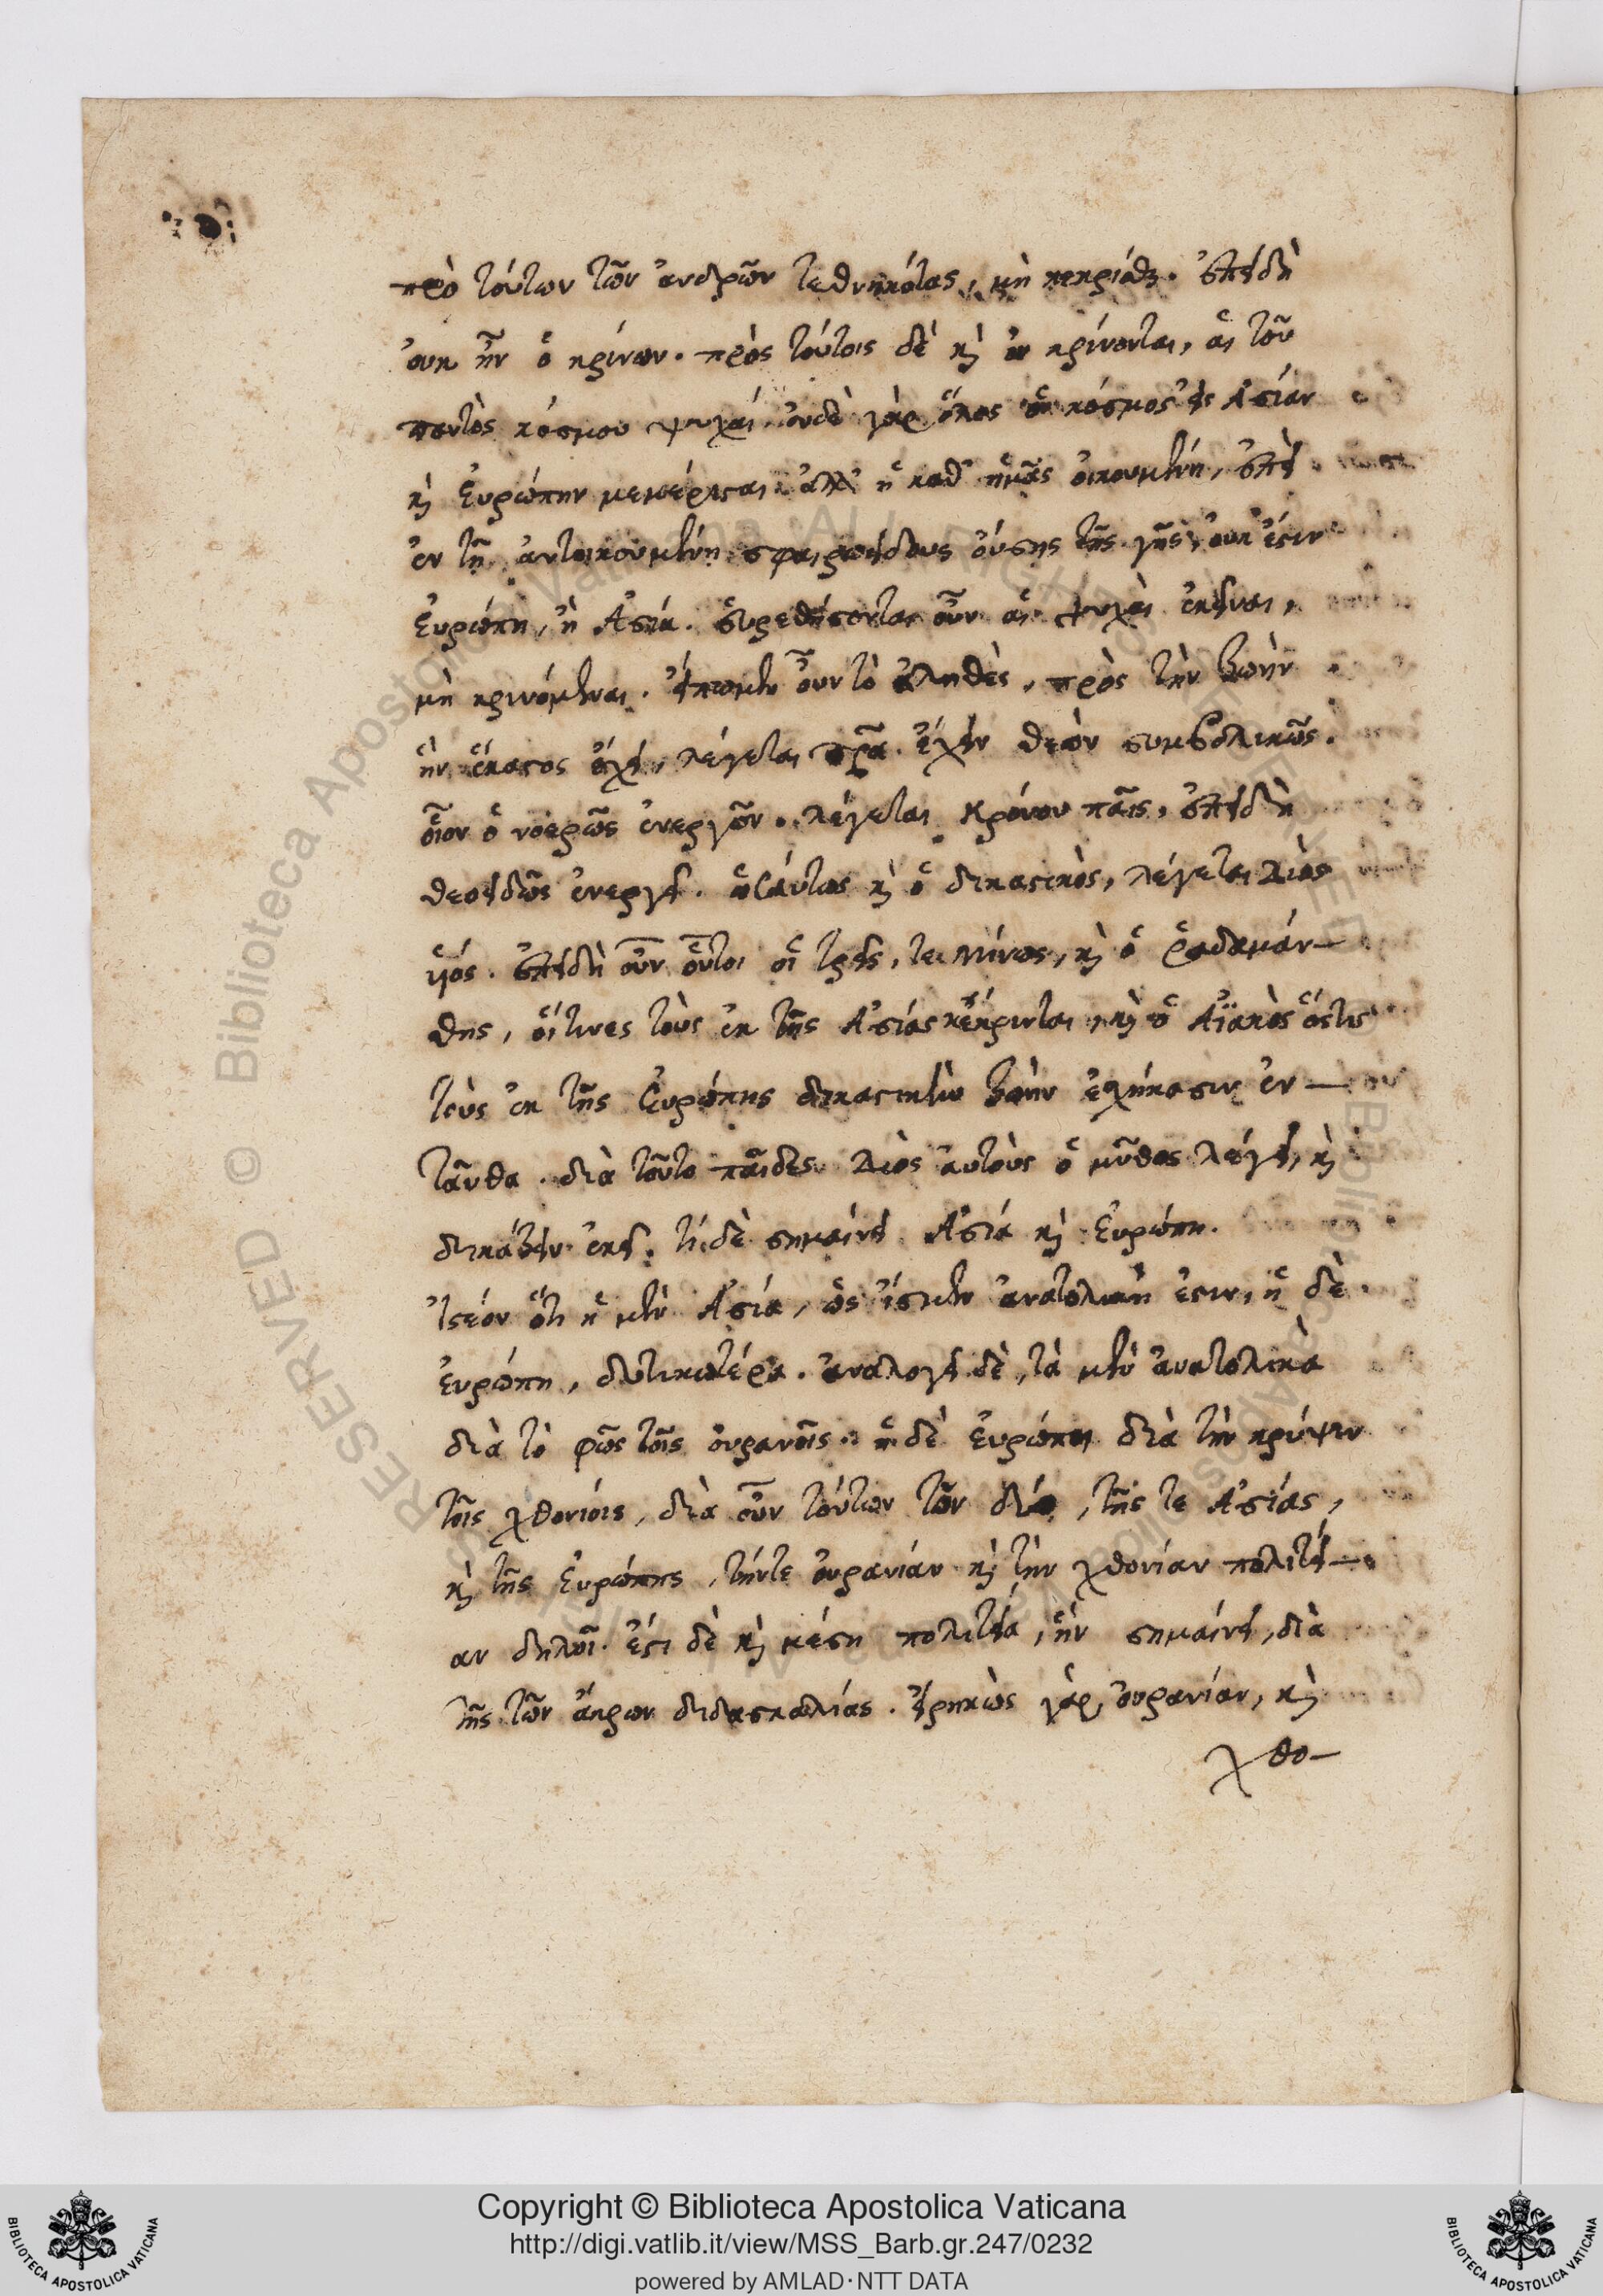 πρὸ τούτων τῶν ἀνδρῶν τεθνηκότας, μὴ κεκρίσθαι. ἐπειδὴ
ουκ ἦν ὁ κρίνων. πρὸς τούτοις δὲ καὶ οὐ κρίνονται, αἱ τοῦ
παντὸς κόσμου ψυχαί. ουδὲ γὰρ ὅλος ὁ κόσμος εἰς Ἀσίαν
καὶ Ἐυρώπην μεμέρισται ἀλλ' ἡ καθ' ἡμᾶς ὀικουμένη, ἐπεὶ
ἐν τῇ ἀντοικουμένῃ σφαιροειδοῦς ὀύσης τῆς γῆς, ὀυκ ἔστιν
Ἐυρώπη, ἢ Ἀσία. ἑυρεθήσονται οὖν αἱ ψυχαὶ ἐκεῖναι,
μὴ κρινόμεναι. ἔιπωμεν οὖν τὸ ἀληθὲς, πρὸς τὴν ζωὴν
ἣν ἕκαστος ἔχει, λέγεται πρᾶ ἔχειν θεὸν συμβολικῶς.
οἷον ὁ νοερῶς ἐνεργῶν. λέγεται Κρόνου παῖς, ἐπειδὴ
θεοειδῶς ἐνεργεῖ. ὡσάυτως καὶ ὁ δικαστικὸς, λέγεται Διὸς
υἱός. ἐπειδὴ οὖν οὗτοι οἱ τρεῖς, τε Μίνως, καὶ ὁ Ῥαδαμάν-
θης, οἵτινες τοὺς ἐκ τῆς Ἀσίας κέκρινται, καὶ ὁ Ἀϊακὸς ὅστις
τοὺς ἐκ τῆς Ἐυρώπης δικαστικὴν ζωὴν ἐχήκασιν ἐν-
ταῦθα. διὰ τοῦτο παῖδες Διὸς ἀυτοὺς ὁ μῦθος λέγει, καὶ
δικάζειν ἐκεῖ. τί δὲ σημαίνει Ἀσία καὶ Ἐυρώπη.
Ἰστέον ὅτι ἡ μὲν Ἀσία, ὡς ἴσμεν ἀνατολικὴ ἐστιν, ἡ δὲ
ἐυρώπη, δυτικωτέρα. ἀναλογεῖ δὲ, τὰ μὲν ἀνατολικὰ
διὰ τὸ φῶς τοῖς ὀυρανοῖς. ἡ δὲ Ἐυρώπη διὰ τὴν κρύψιν
τοῖς χθονίοις, διὰ οὖν τούτων τῶν δύο, τῆς τε Ἀσίας,
καὶ τῆς Ἐυρώπης, τήντε ὀυρανίαν καὶ τὴν χθονίαν πολιτεί-
αν δηλοῖ. ἔστι δὲ καὶ μέση πολιτεία, ἣν σημαίνει, διὰ
τῆς τῶν ἄκρων διδασκαλίας. ἐιρηκὼς γὰρ ὀυρανίαν, καὶ
χθο-
Copyright © Biblioteca Apostolica Vaticana
http://digi.vatlib.it/view/MSS_Barb.gr.247/0232
powered by AMLAD·NTT DATA